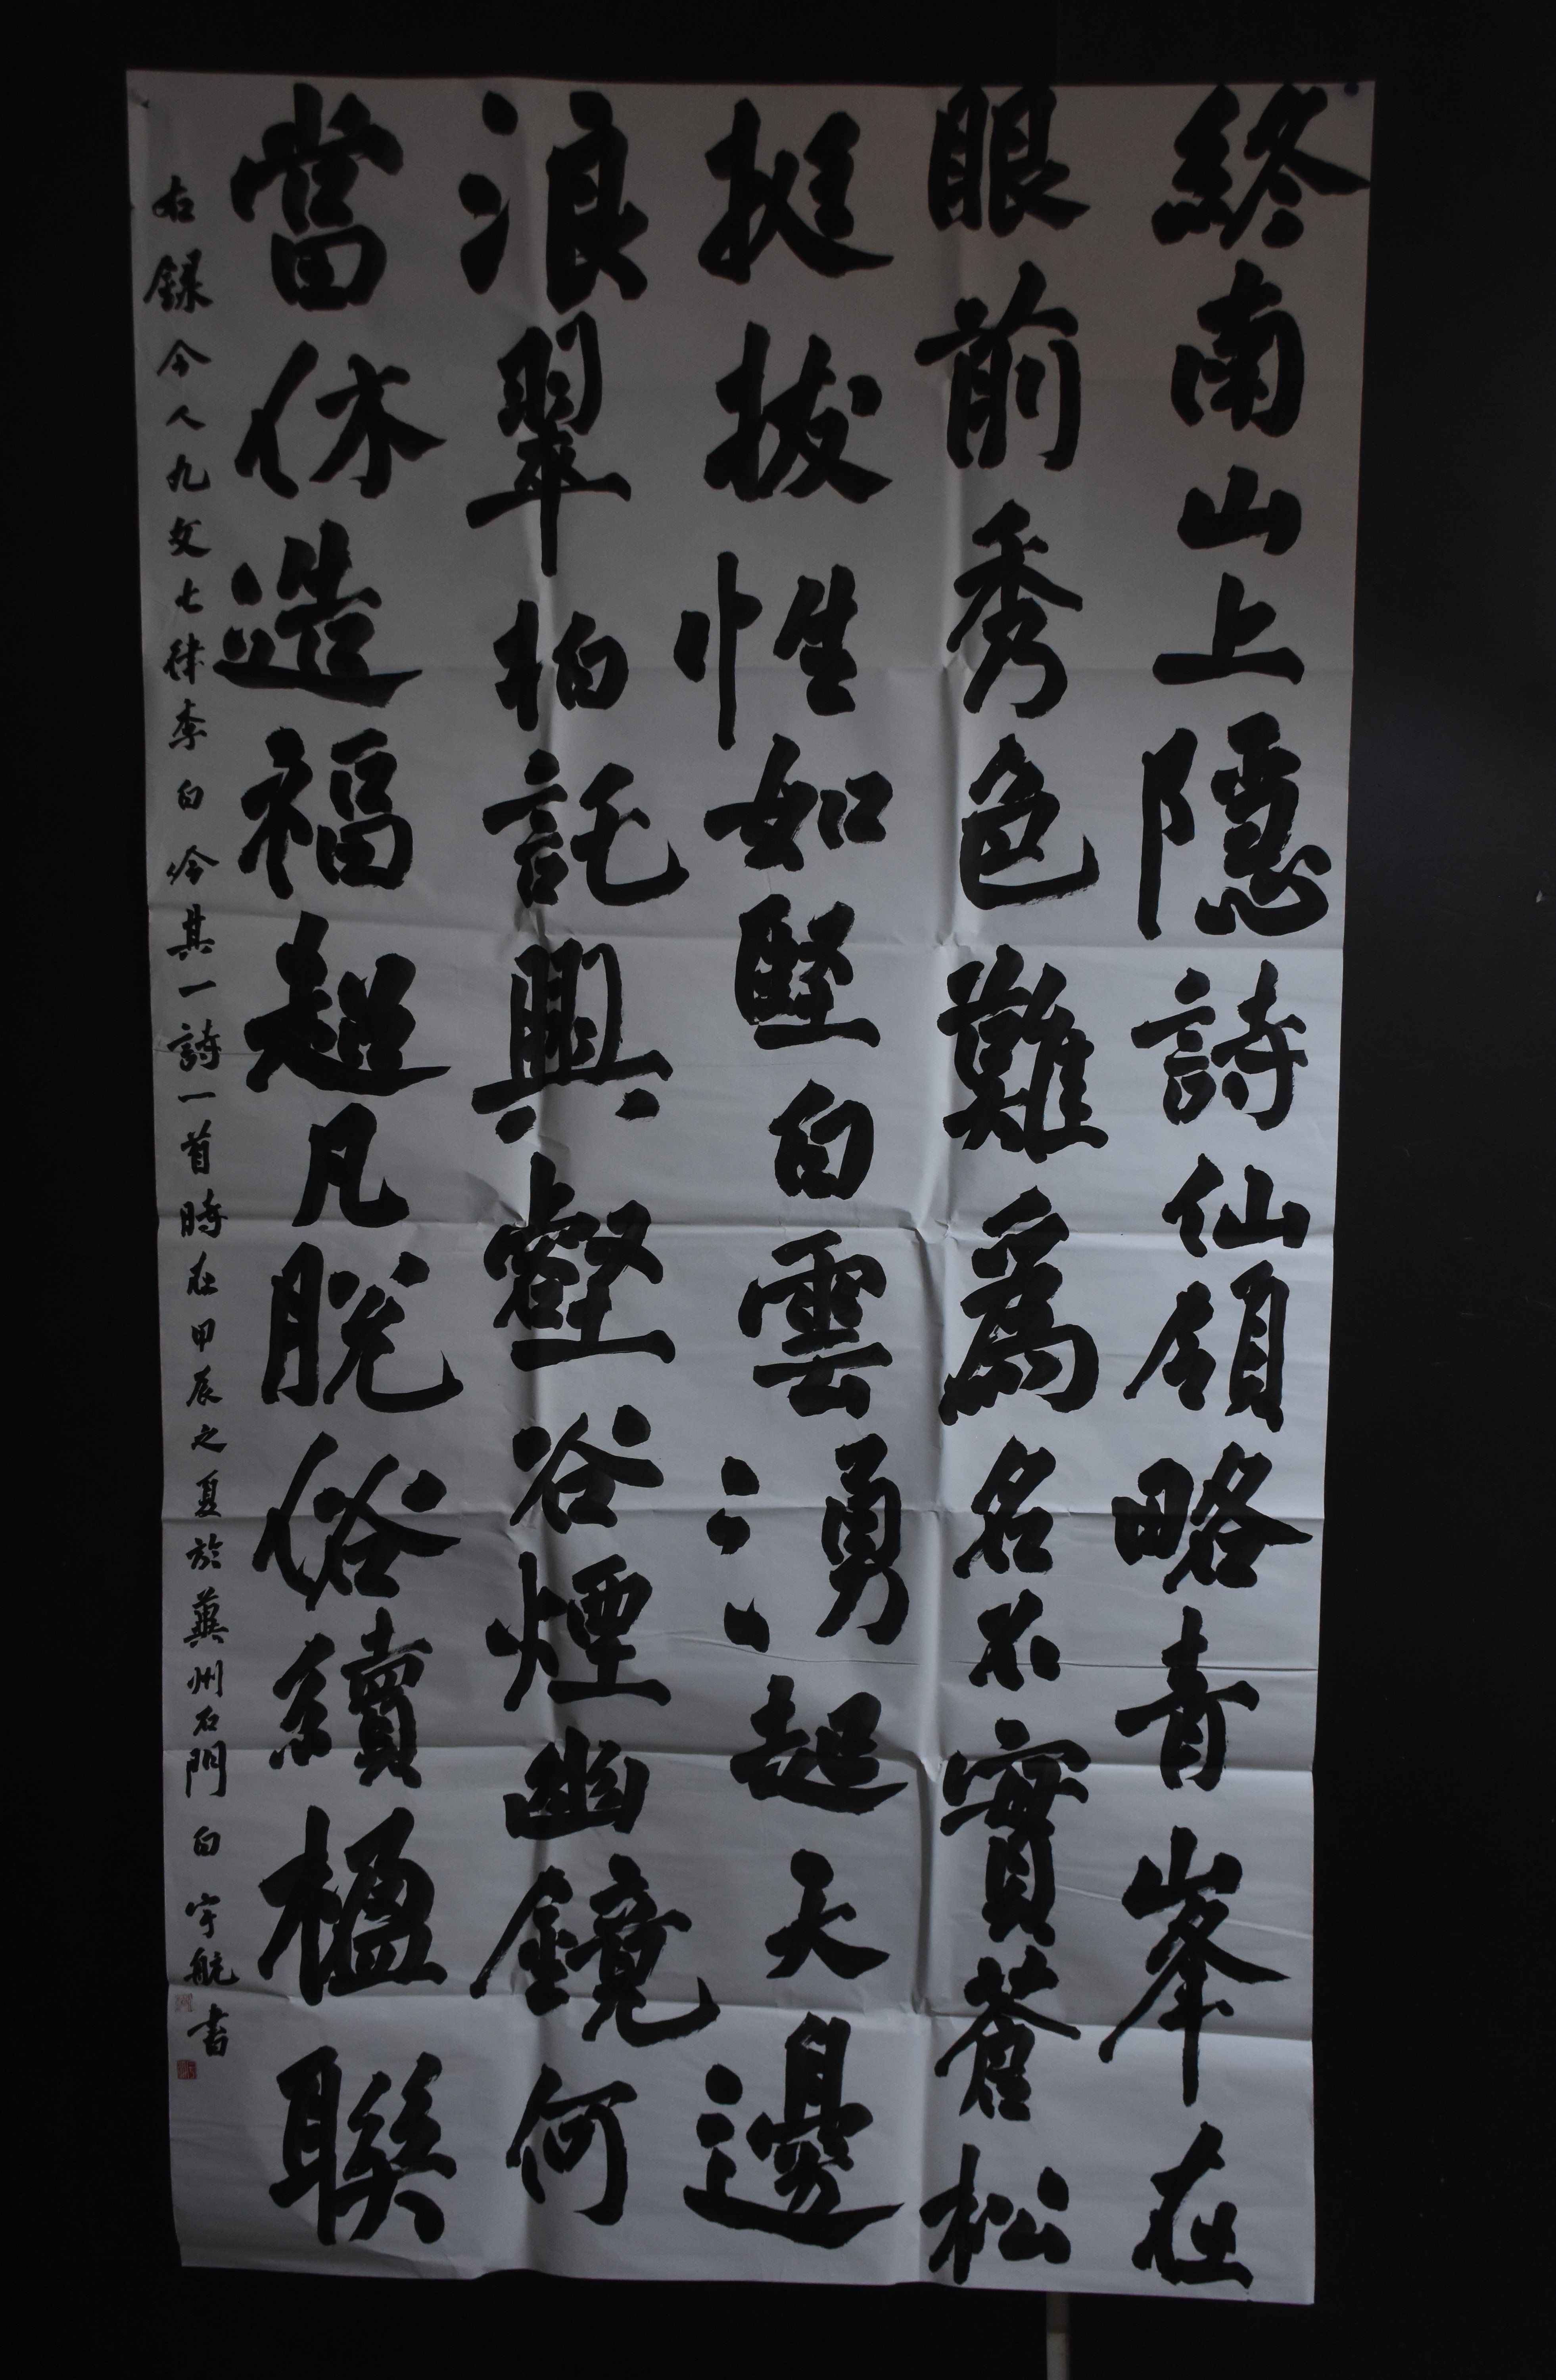 終南山上隱詩仙領略青峯在
眼前秀色難為名不實蒼松
挺拔性如堅白雲湧起天邊
浪翠柏託興壑谷煙幽鏡何
當休造福超凡脫俗續楹聯
右録今人九文七律李白吟其一詩一首時在甲辰之夏於冀州石門白宇航書